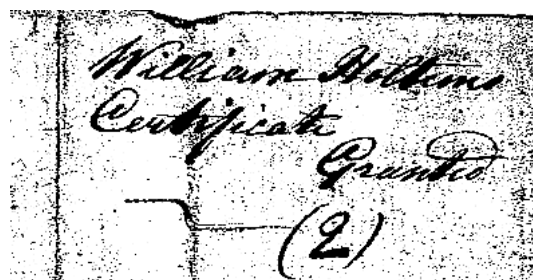 William Holtims
Certificate
Granted
(2)